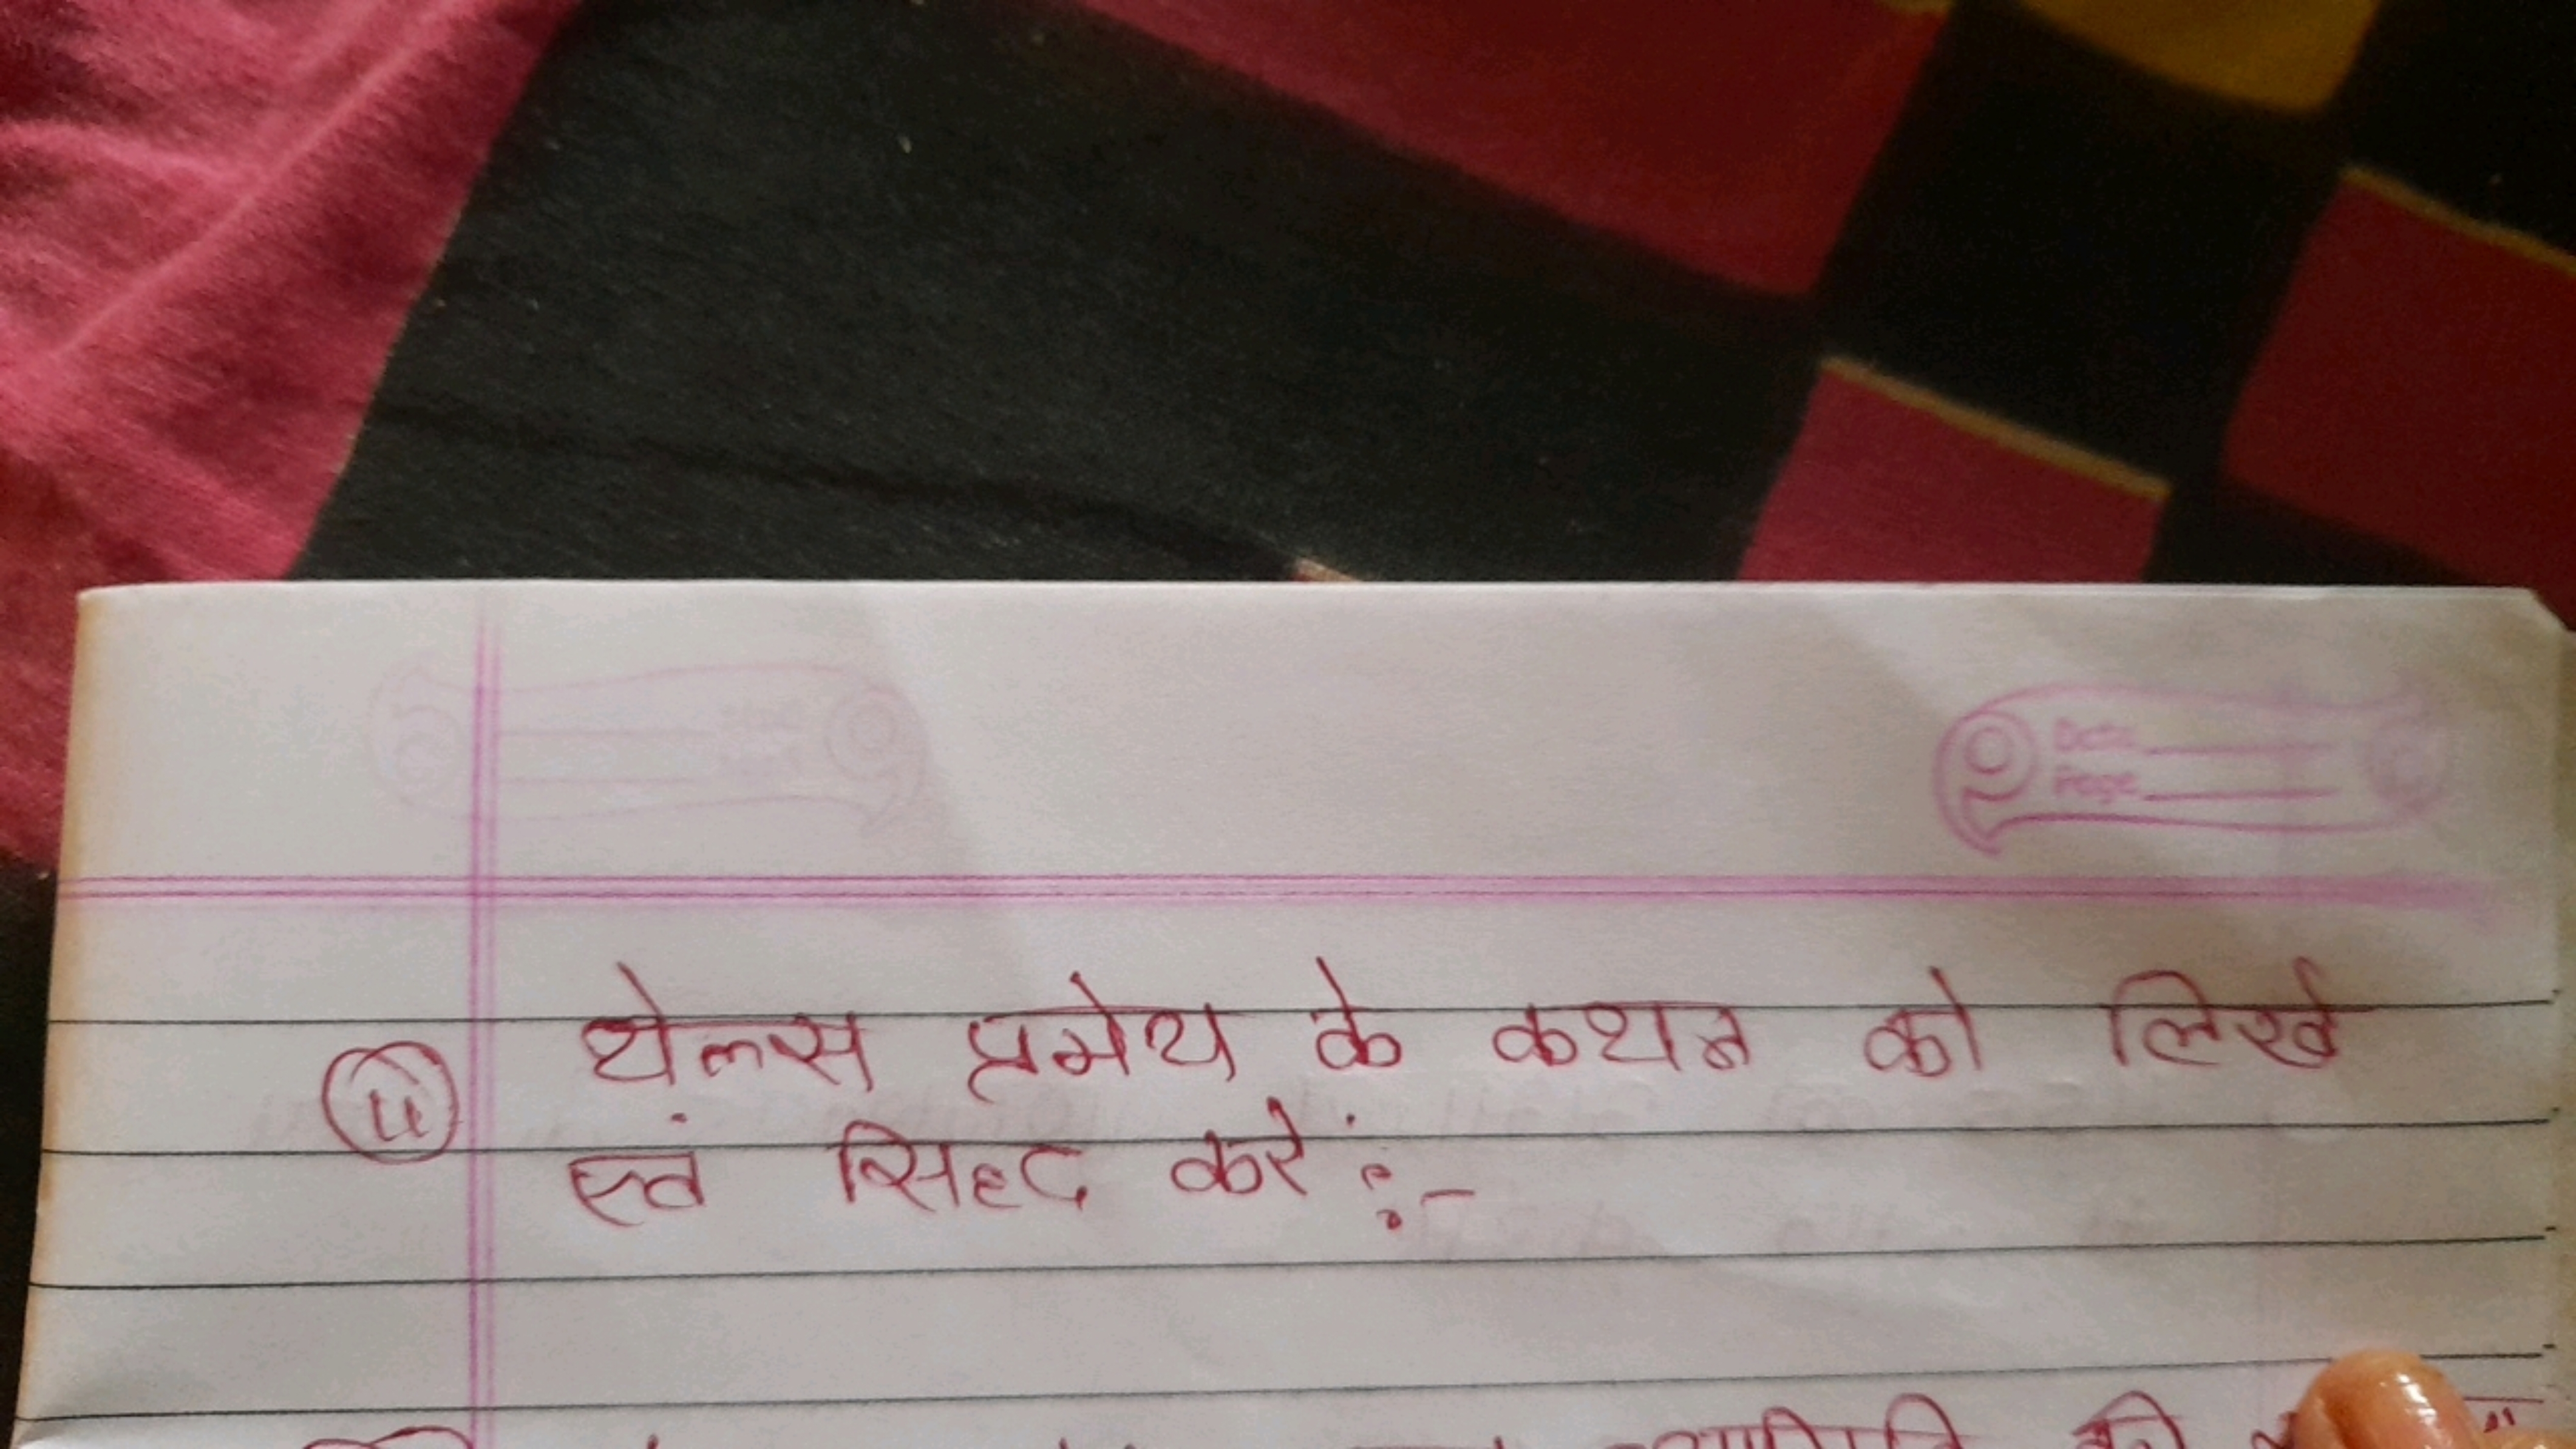 Date
Page
(ii) थेल्स प्रमेय के कथन को लिखे
एवं सिद्द करें :-